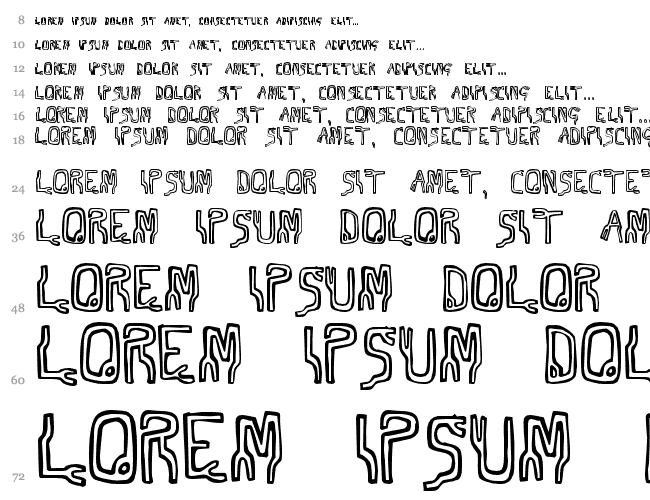 8 LOREM IPSUM DOLOR SIT AMET, CONSECTETUER ADIPISCING ELIT...
10 LOREM IPSUM DOLOR SIT AMET, CONSECTETUER ADIPISCING ELIT...
12 LOREM IPSUM DOLOR SIT AMET, CONSECTETUER ADIPISCING ELIT...
14 LOREM IPSUM DOLOR SIT AMET, CONSECTETUER ADIPISCING ELIT...
16 LOREM IPSUM DOLOR SIT AMET, CONSECTETUER ADIPISCING ELIT...
18 LOREM IPSUM DOLOR SIT AMET, CONSECTETUER ADIPISCING
24 LOREM IPSUM DOLOR SIT AMET, CONSECTE
36 LOREM IPSUM DOLOR SIT AM
48 LOREM IPSUM DOLOR
60 LOREM IPSUM DOL
72 LOREM IPSUM